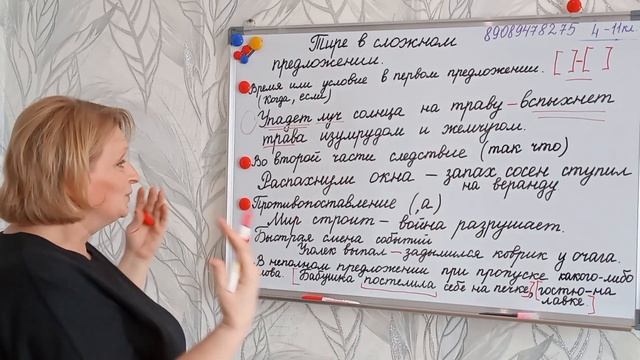 89089478275 4-11кл.
Тире в сложном
предложении.
[ ]-[ ]
Время или условие в первом предложении.
(когда, если)
Упадет луч солнца на траву - вспыхнет
трава изумрудом и жемчугом.
Во второй части следствие (так что)
Распахнули окна - запах сосен ступил
на веранду
Противопоставление (,а)
Мир строит - война разрушает.
Быстрая смена событий
Уголек выпал - задымился коврик у очага.
В неполном предложении при пропуске какого-либо
слова. [Бабушка постелила себе на печке], [гостю-на
лавке]